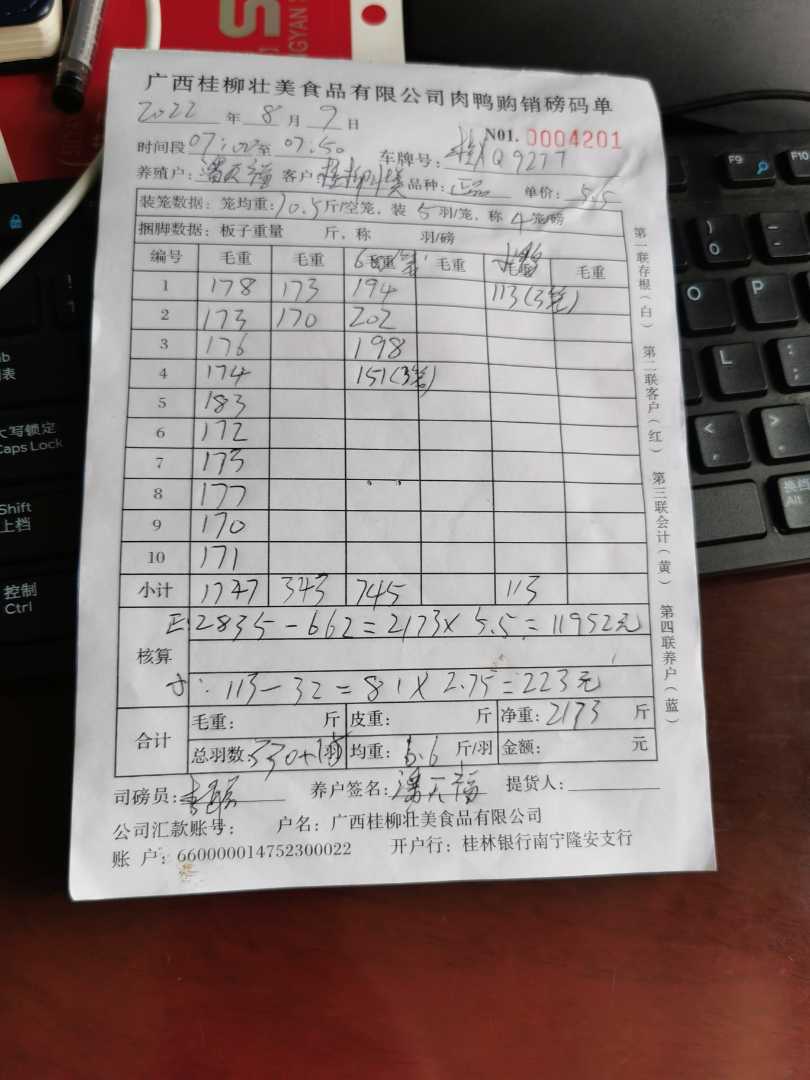 广西桂柳壮美食品有限公司肉鸭购销磅码单
2022 年 8 月 9 日
N01. 0004201
时间段 07:00 至 07:50 车牌号: Q9277
养殖户: 潘天福 客户: 桂柳壮美 品种: 正品 单价: 5.5
装笼数据: 笼均重: 10.5 斤/空笼, 装 5 羽/笼, 称 4 笼/磅
捆脚数据: 板子重量 斤, 称 羽/磅
编号 毛重 毛重 毛重 毛重 毛重 毛重
1 178 173 194 113(3笼)
2 173 170 202
3 176 198
4 174 151(3笼)
5 183
6 172
7 173
8 177
9 170
10 171
小计 1747 343 745 113
核算 正: 2835-662=2173×5.5=11952元
113-32=81×2.75=223元
合计 毛重: 斤 皮重: 斤 净重: 2173 斤
总羽数: 330+ 羽 均重: 6.6 斤/羽 金额: 元
司磅员: 养户签名: 潘天福 提货人:
公司汇款账号: 户名: 广西桂柳壮美食品有限公司
账 户: 660000014752300022 开户行: 桂林银行南宁隆安支行
第一联存根(白) 第二联客户(红) 第三联会计(黄) 第四联养户(蓝)
F9
F10
O
P
L
Caps Lock
大写锁定
Shift
上档
控制
Ctrl
Alt